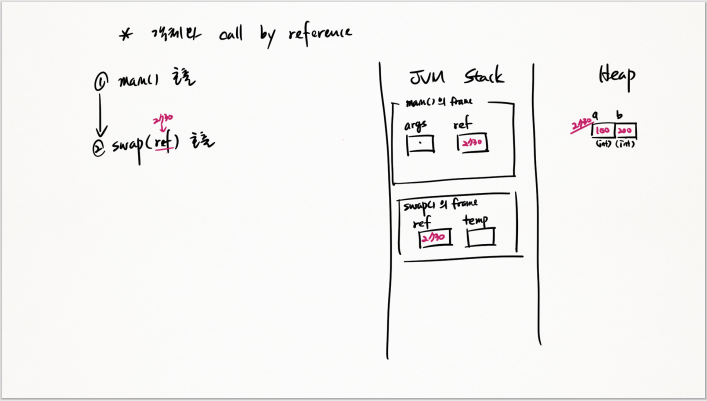 * 객체와 call by reference
① main() 호출
2730
② swap(ref) 호출
JVM Stack
main()의 frame
args ref
2730
swap()의 frame
ref temp
2730
Heap
a b
2730 100 200
(int) (int)